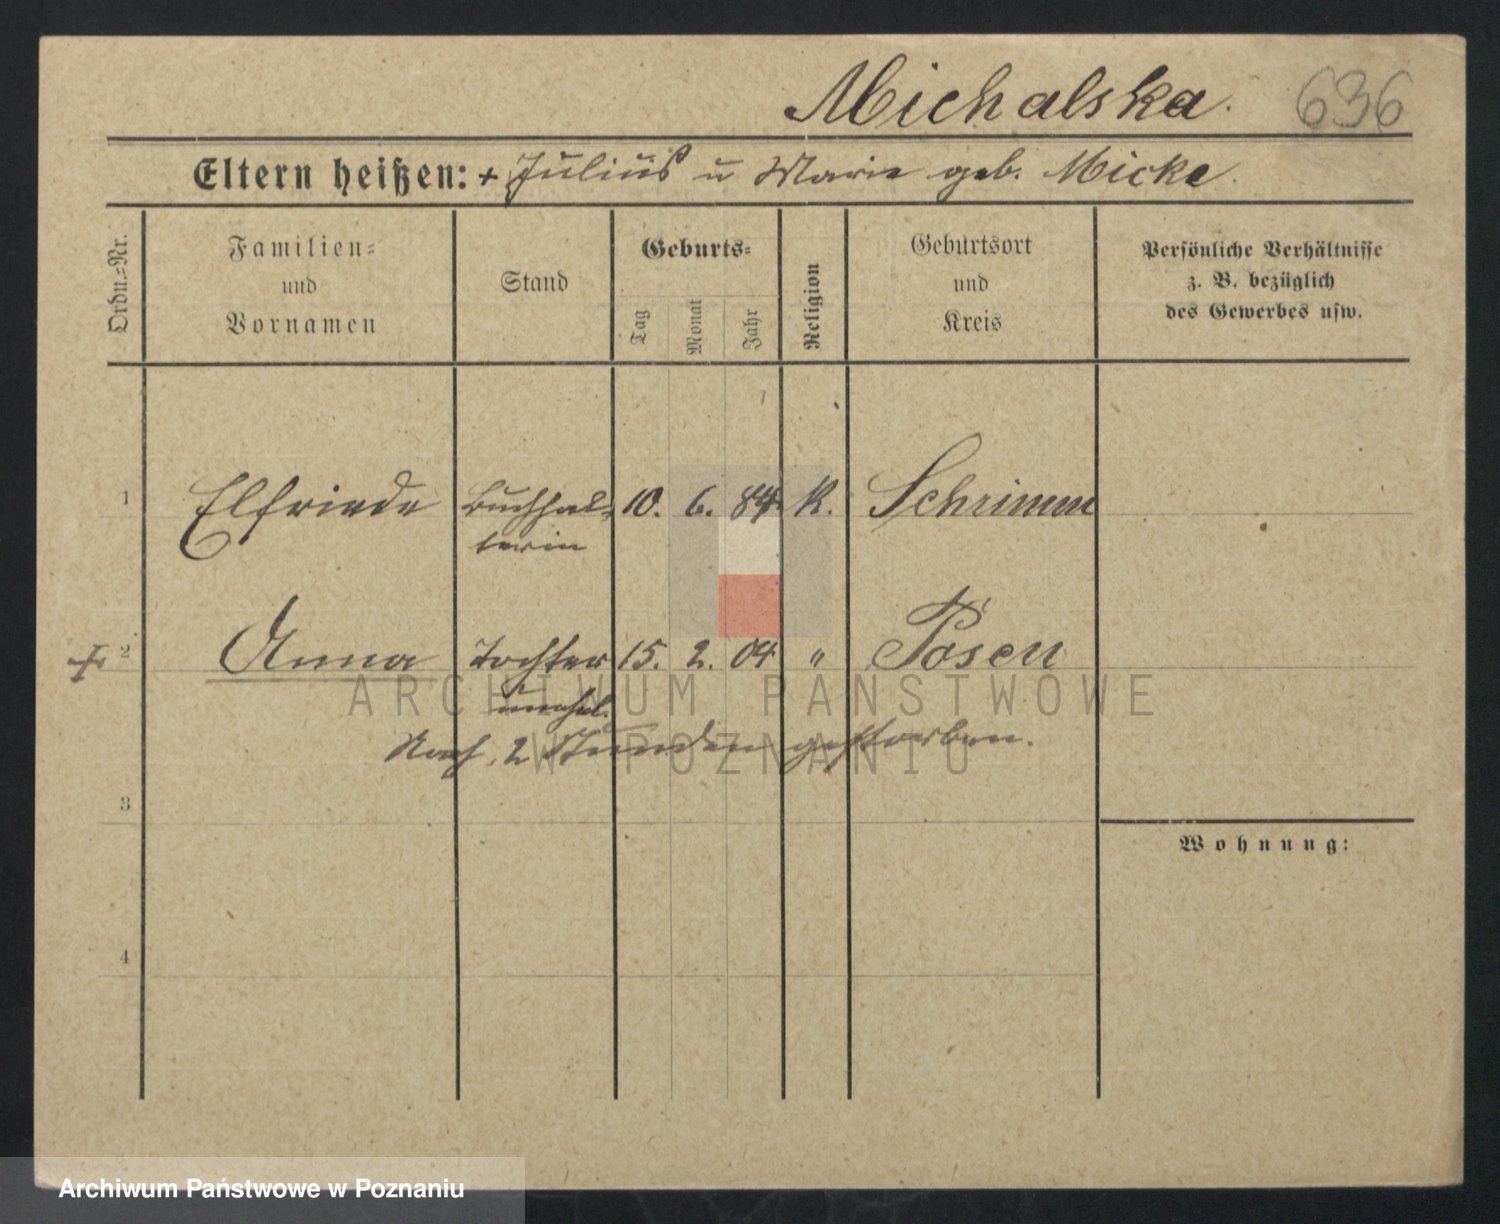 Michalska. 636
Eltern heißen: + Julius u Marie geb. Micke.
Ordn.-Nr.
Familien-
und
Vornamen
Stand
Geburts-
Tag
Monat
Jahr
Religion
Geburtsort
und
Kreis
Persönliche Verhältnisse
z. B. bezüglich
des Gewerbes usw.
1 Elfriede Buchhal- 10. 6. 84 K. Schrimm
terin
+ 2 Anna Tochter 15. 2. 04 " Posen
unehel.
Nach 2 Stunden gestorben.
3
Wohnung:
4
ARCHIWUM PAŃSTWOWE
W POZNANIU
Archiwum Państwowe w Poznaniu